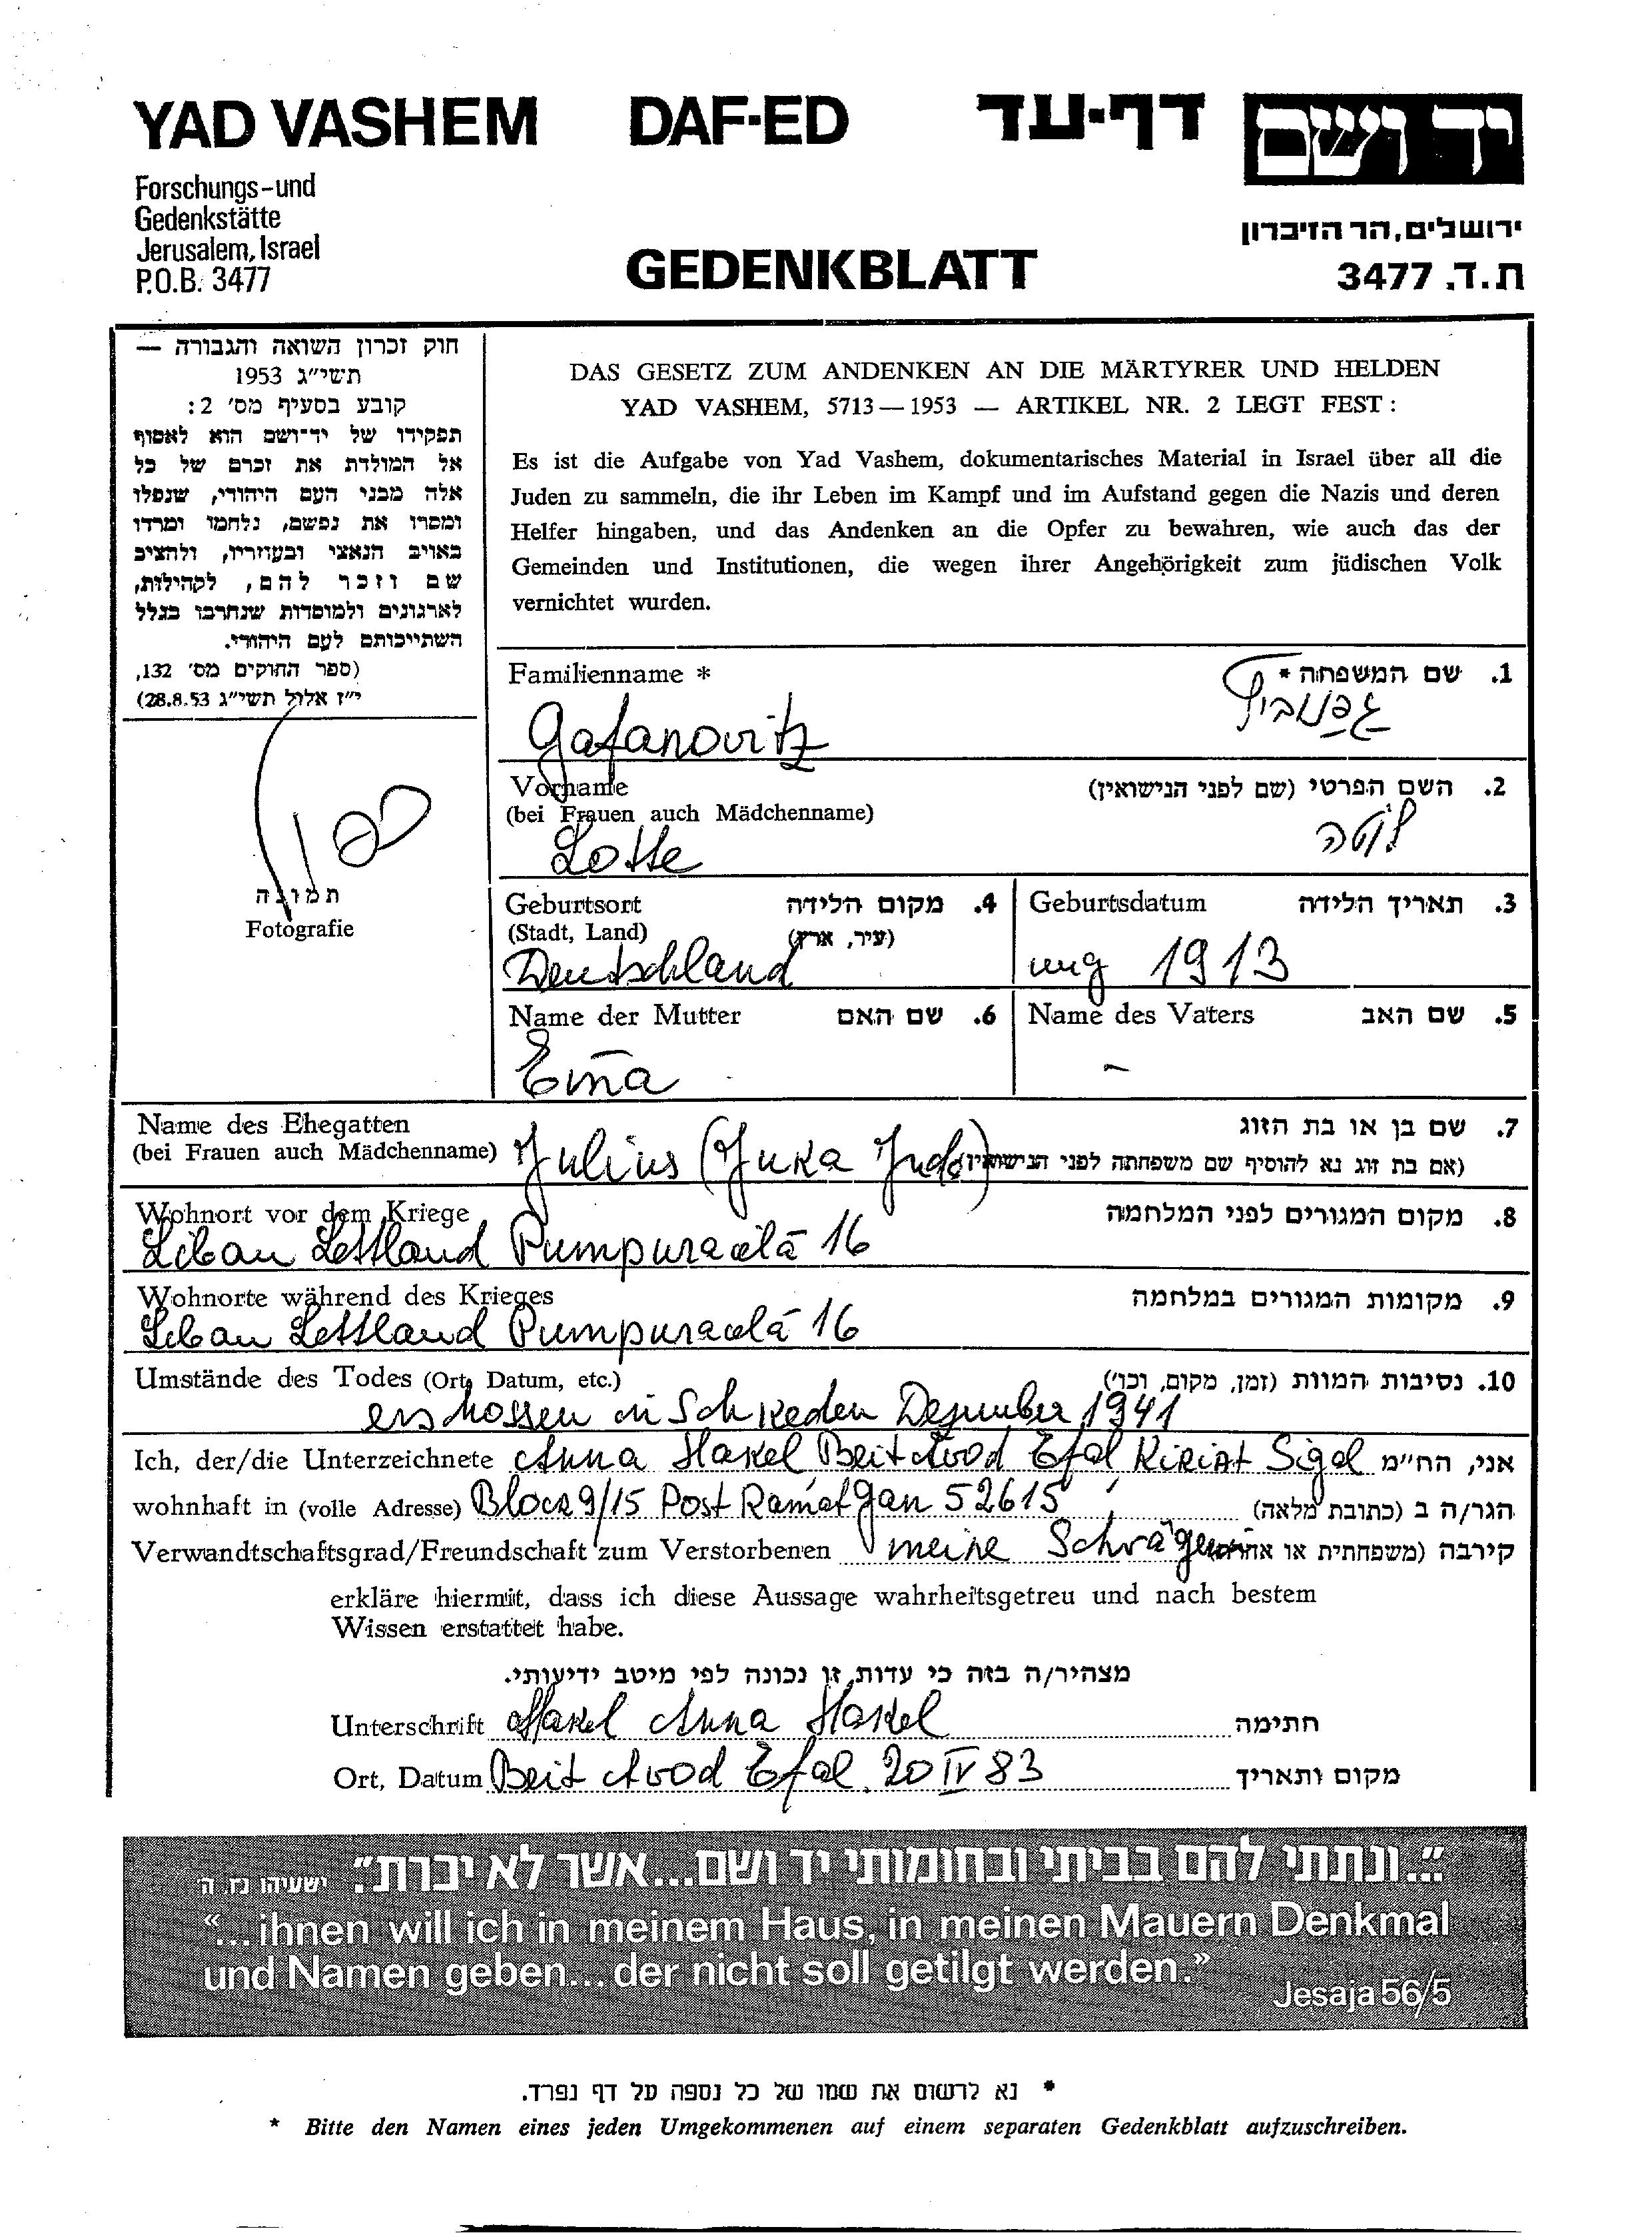 YAD VASHEM DAF-ED דף-עד יד ושם
Forschungs-und
Gedenkstätte
Jerusalem, Israel
P.O.B. 3477
GEDENKBLATT
ירושלים, הר הזיכרון
ת.ד. 3477
חוק זכרון השואה והגבורה —
תשי"ג 1953
קובע בסעיף מס' 2:
תפקידו של יד־ושם הוא לאסוף
אל המולדת את זכרם של כל
אלה מבני העם היהודי, שנפלו
ומסרו את נפשם, נלחמו ומרדו
באויב הנאצי ובעוזריו, ולהציב
שם וזכר להם, לקהילות,
לארגונים ולמוסדות שנחרבו בגלל
השתייכותם לעם היהודי.
(ספר החוקים מס' 132,
י"ז אלול תשי"ג 28.8.53)
תמונה
Fotografie
DAS GESETZ ZUM ANDENKEN AN DIE MÄRTYRER UND HELDEN
YAD VASHEM, 5713 — 1953 — ARTIKEL NR. 2 LEGT FEST :
Es ist die Aufgabe von Yad Vashem, dokumentarisches Material in Israel über all die
Juden zu sammeln, die ihr Leben im Kampf und im Aufstand gegen die Nazis und deren
Helfer hingaben, und das Andenken an die Opfer zu bewahren, wie auch das der
Gemeinden und Institutionen, die wegen ihrer Angehörigkeit zum jüdischen Volk
vernichtet wurden.
Familienname * 1. שם המשפחה *
Gafanovitz גפנוביץ
Vorname 2. השם הפרטי (שם לפני הנישואין)
(bei Frauen auch Mädchenname)
Lotte לוטה
Geburtsort 4. מקום הלידה
(Stadt, Land) (עיר, ארץ)
Deutschland
Geburtsdatum 3. תאריך הלידה
ung 1913
Name der Mutter 6. שם האם
Ema
Name des Vaters 5. שם האב
–
Name des Ehegatten 7. שם בן או בת הזוג
(bei Frauen auch Mädchenname) Julius (Juka Juda) (אם בת זוג נא להוסיף שם משפחתה לפני הנישואין)
Wohnort vor dem Kriege 8. מקום המגורים לפני המלחמה
Libau Lettland 16
Wohnorte während des Krieges 9. מקומות המגורים במלחמה
Libau Lettland 16
Umstände des Todes (Ort, Datum, etc.) 10. נסיבות המוות (זמן, מקום, וכו')
erschossen in Schkeden Dezember 1941
Ich, der/die Unterzeichnete Anna Hakel Beit Avod Efal Kiriat Sigal אני, הח"מ
wohnhaft in (volle Adresse) Block 9/15 Post Ramat gan 52615 הגר/ה ב (כתובת מלאה)
Verwandtschaftsgrad/Freundschaft zum Verstorbenen meine Schwägerin קירבה (משפחתית או אחרת)
erkläre hiermit, dass ich diese Aussage wahrheitsgetreu und nach bestem
Wissen erstattet habe.
מצהיר/ה בזה כי עדות זו נכונה לפי מיטב ידיעותי.
Unterschrift Hakel Anna Hakel חתימה
Ort, Datum Beit Avod Efal 20 IV 83 מקום ותאריך
"...ונתתי להם בביתי ובחומותי יד ושם...אשר לא יכרת". ישעיהו נו, ה'
“...ihnen will ich in meinem Haus, in meinen Mauern Denkmal
und Namen geben... der nicht soll getilgt werden.”
Jesaja 56/5
* נא לרשום את שמו של כל נספה על דף נפרד.
* Bitte den Namen eines jeden Umgekommenen auf einem separaten Gedenkblatt aufzuschreiben.